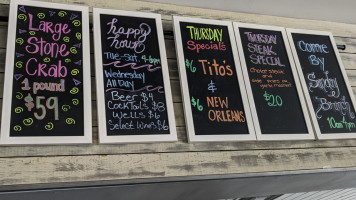 Large
Stone
Crab
1 pound
$59
happy
hour
Tue-Sat 4-6pm
Wednesday
All Day
Beer $4
Cocktails $8
Wells $6
Select Wines $6
THURSDAY
Specials
$6 Tito's
&
$6 NEW
ORLEANS
THURSDAY
STEAK
SPECIAL
$20
Come
by
Sunday
Brunch
10am